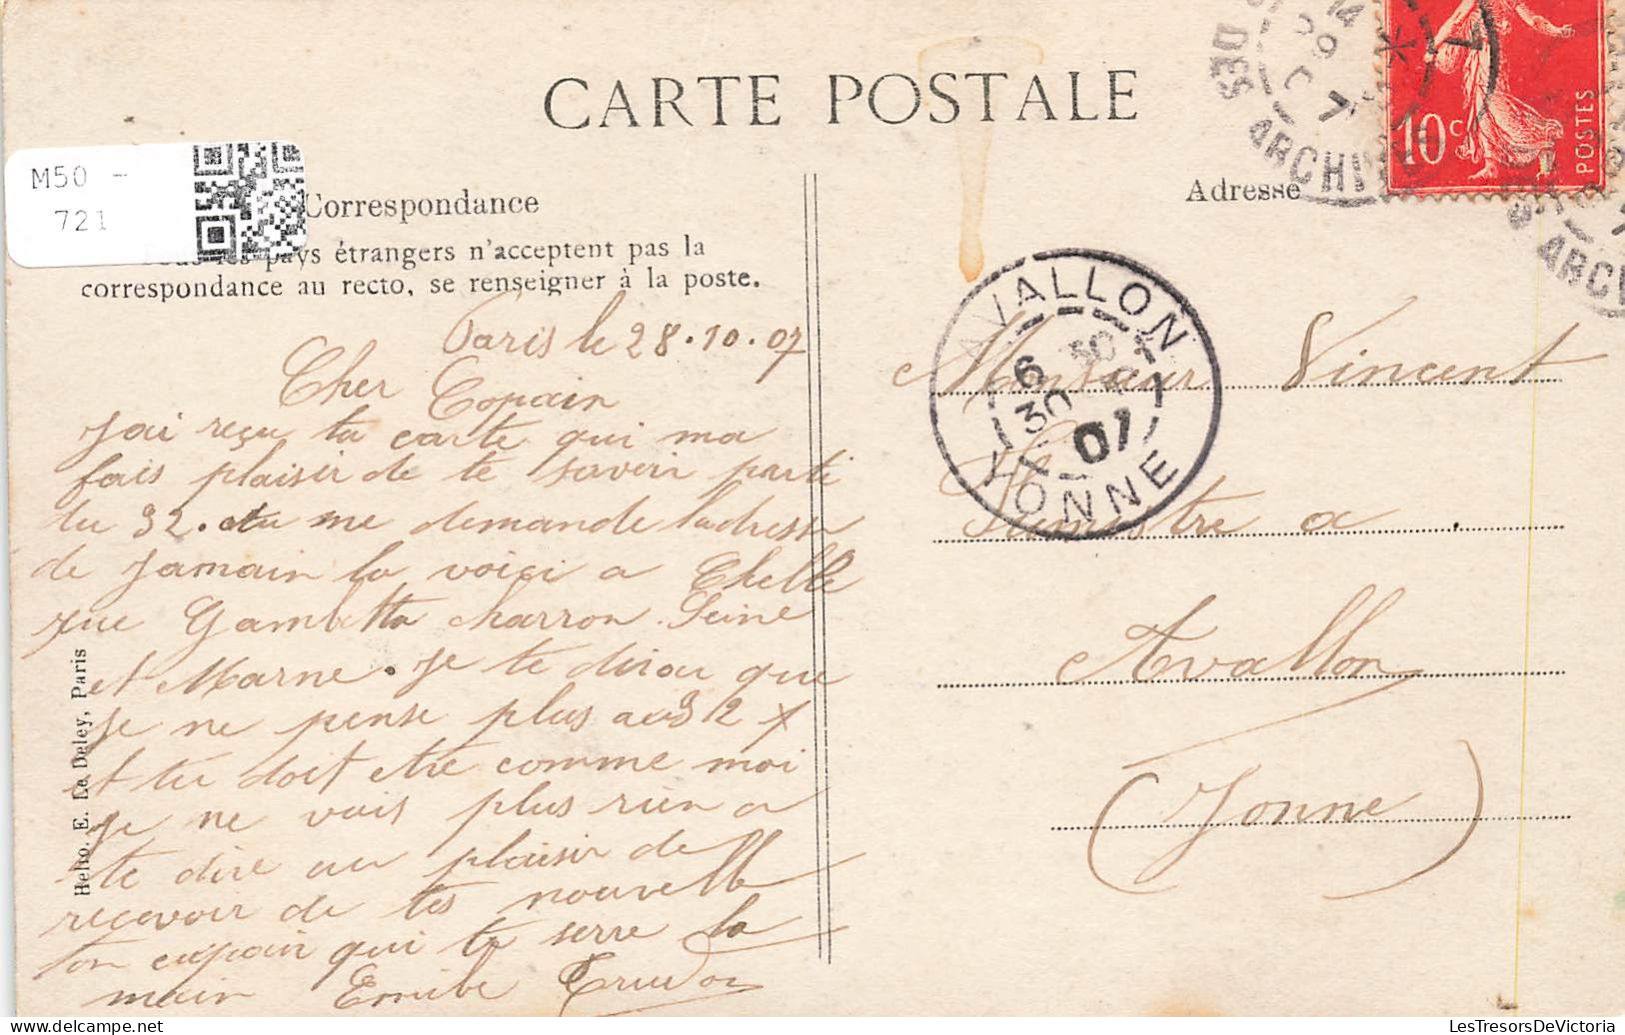 CARTE POSTALE
M50 -
721
Correspondance
pays étrangers n'acceptent pas la
correspondance au recto, se renseigner à la poste.
Adresse
10c
POSTES
DES ARCHIVES
AVALLON
YONNE
6
30
07
Paris le 28.10.07
Cher Copain
J'ai reçu ta carte qui ma
fais plaisir de te savoir parti
du 32. tu me demande ladresse
de Jamain la voici a Chelle
rue Gambetta charron Seine
et Marne. Je te dirai que
je ne pense plus au 32
et tu doit etre comme moi
je ne vais plus rien a
te dire au plaisir de
recevoir de tes nouvelle
ton copain qui te serre la
main Emile
Monsieur Vincent
a
Avallon
(Yonne)
Helio. E. Le Deley, Paris
LesTresorsDeVictoria